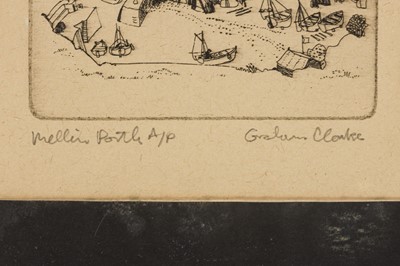 Mellin Porth A/P Graham Cloake